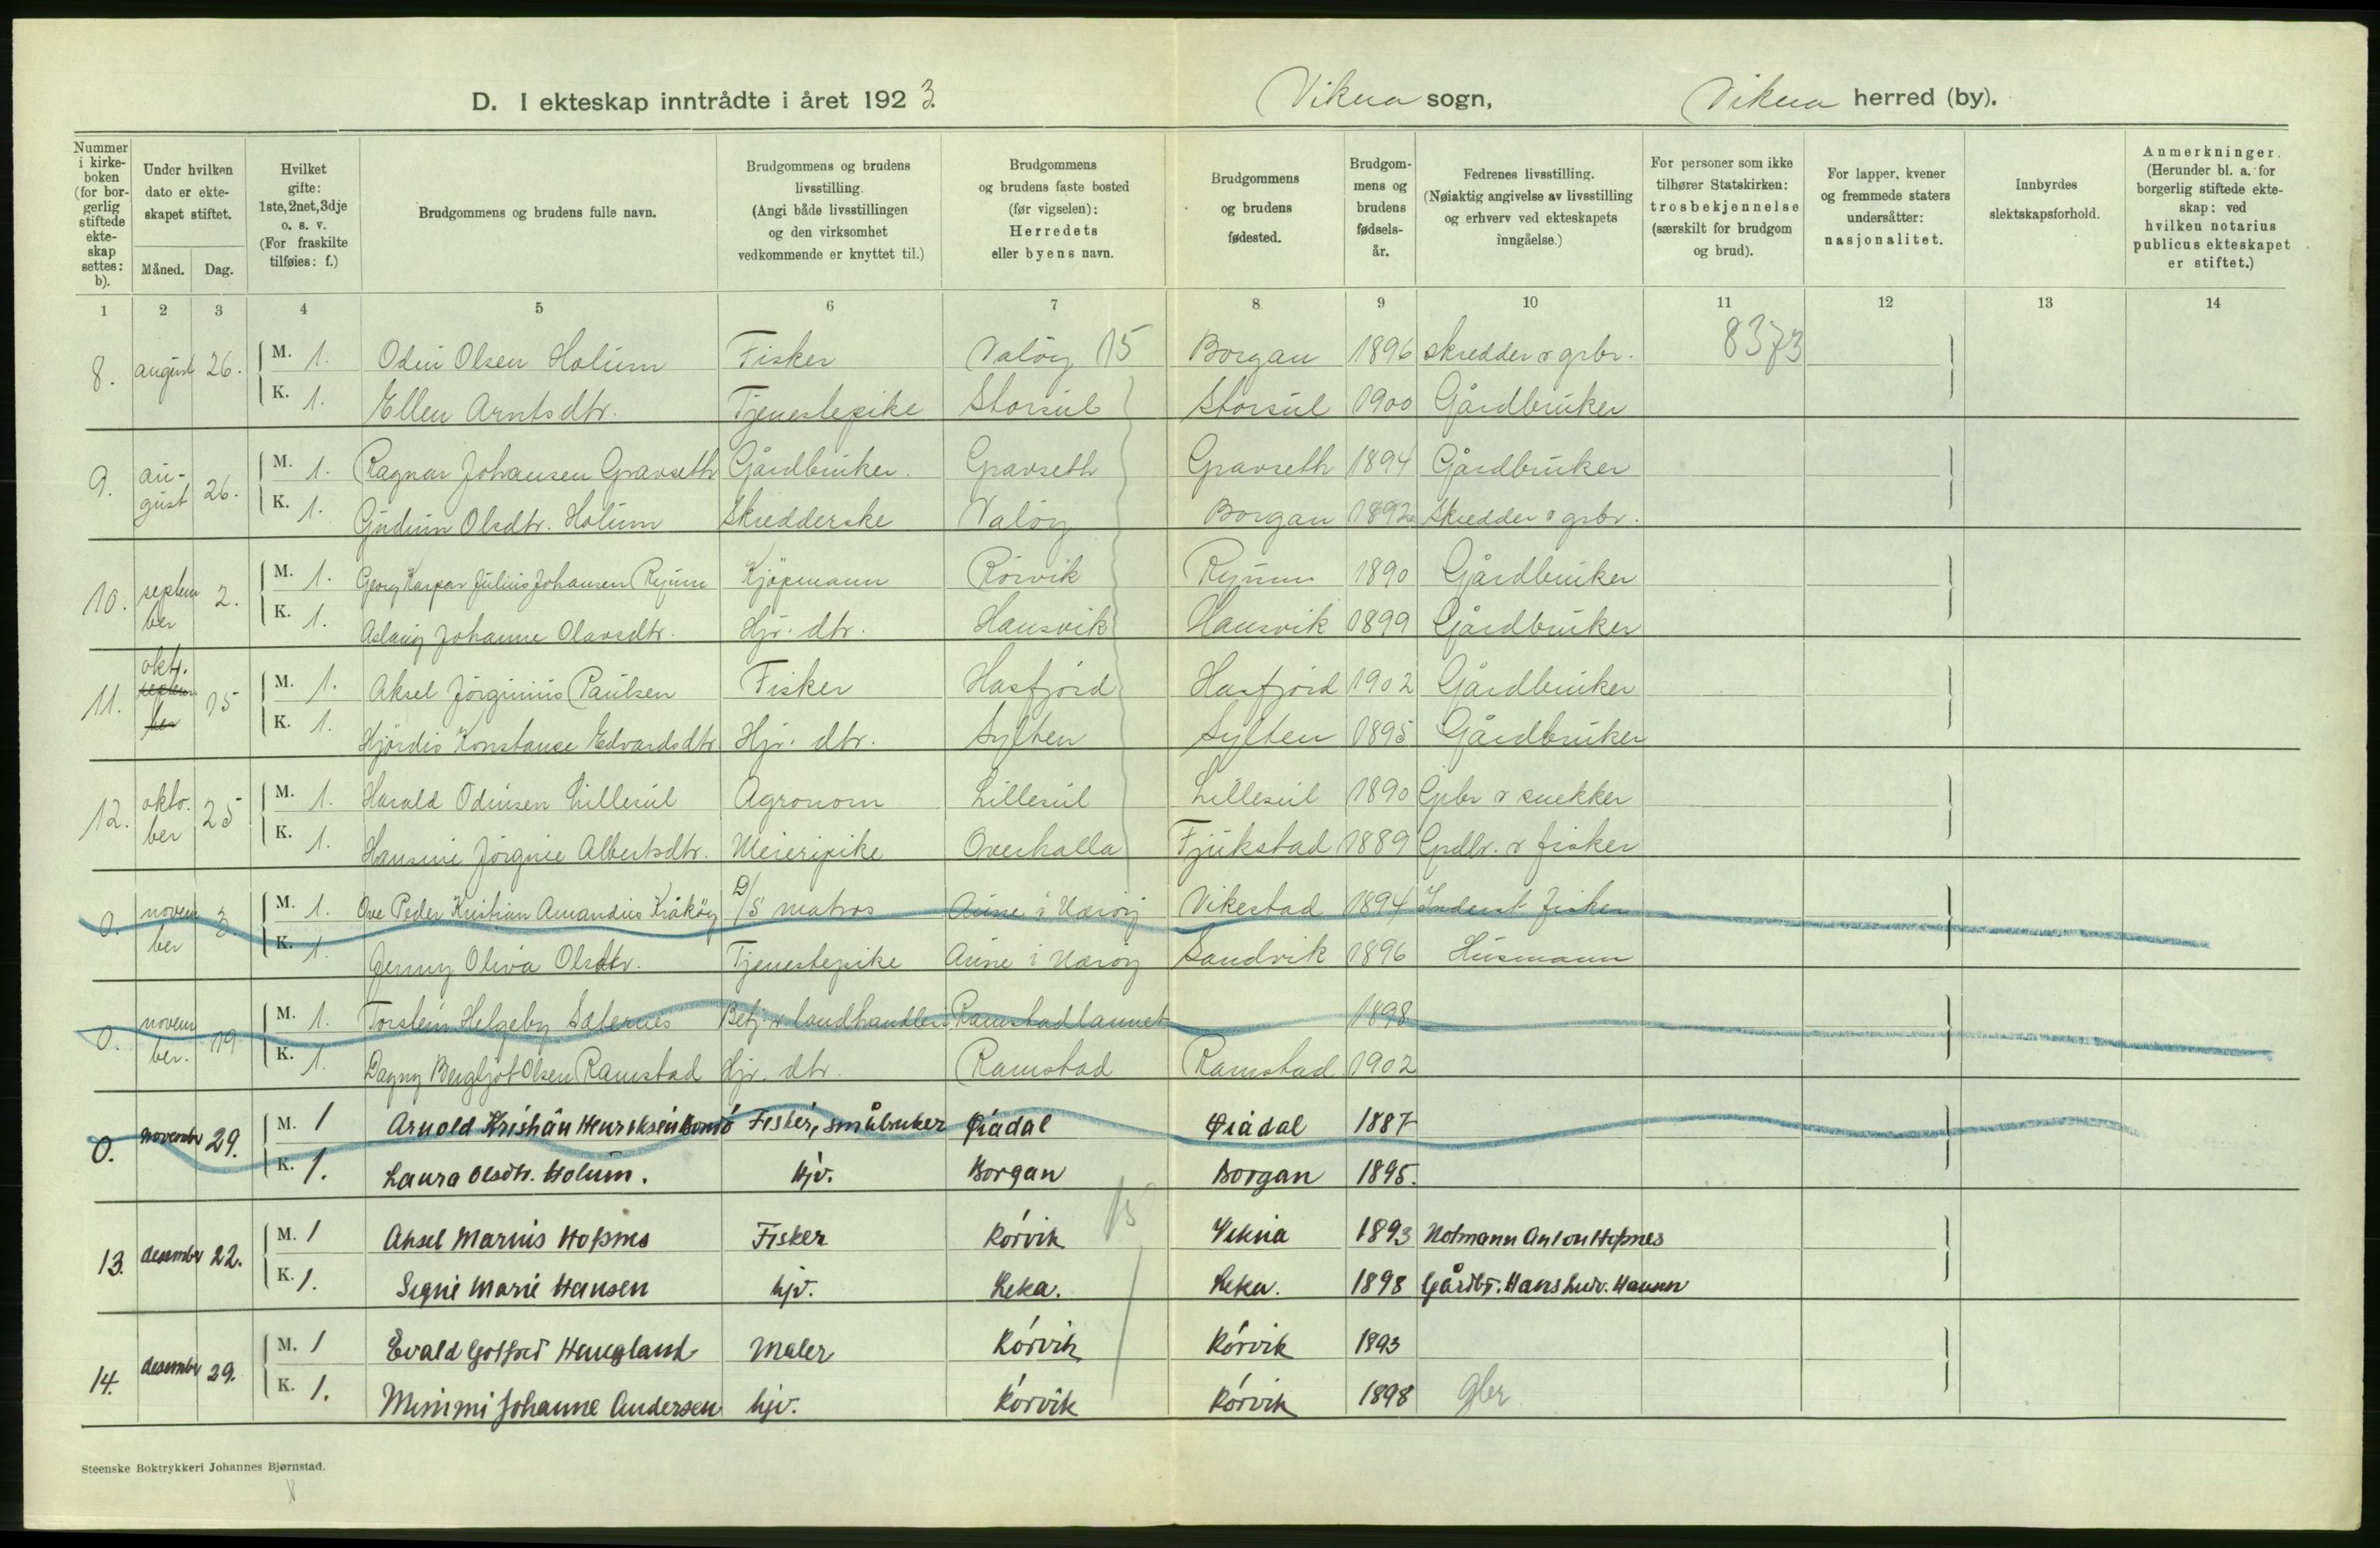 D. I ekteskap inntrådte i året 1923. Vikna sogn, Vikna herred (by).
Nummer i kirkeboken (for borgerlig stiftede ekteskap settes: b). Under hvilken dato er ekteskapet stiftet. Måned. Dag. Hvilket gifte: 1ste, 2net, 3dje o. s. v. (For fraskilte tilføies: f.) Brudgommens og brudens fulle navn. Brudgommens og brudens livsstilling. (Angi både livsstillingen og den virksomhet vedkommende er knyttet til.) Brudgommens og brudens faste bosted (før vigselen): Herredets eller byens navn. Brudgommens og brudens fødested. Brudgommens og brudens fødselsår. Fedrenes livsstilling. (Nøiaktig angivelse av livsstilling og erhverv ved ekteskapets inngåelse.) For personer som ikke tilhører Statskirken: trosbekjennelse (særskilt for brudgom og brud). For lapper, kvener og fremmede staters undersåtter: nasjonalitet. Innbyrdes slektskapsforhold. Anmerkninger. (Herunder bl. a. for borgerlig stiftede ekteskap: ved hvilken notarius publicus ekteskapet er stiftet.)
1 2 3 4 5 6 7 8. 9 10 11 12 13 14
8. august 26. M. 1. Odin Olsen Holum Fisker Valöy 15 Borgan 1896 skredder & grbr. 8373
K. 1. Ellen Arntsdtr. Tjenestepike Storsul Storsul 1900 Gårdbruker
9. august 26. M. 1. Ragnar Johansen Gravseth Gårdbruker. Gravseth Gravseth 1894 Gårdbruker
K. 1. Gudrun Olsdtr. Holum Skredderske Valöy Borgan 1892 Skredder & grbr.
10. september 2. M. 1. Georg Kaspar Julius Johansen Ryum Kjöpmann Rörvik Ryum 1890 Gårdbruker
K. 1. Aslaug Johanne Olavsdtr. Hjv. dtr. Hansvik Hansvik 1899 Gårdbruker
11. okt. september 15 M. 1. Aksel Jörginius Paulsen Fisker Hasfjord Hasfjord 1902 Gårdbruker
K. 1. Hjördis Konstanse Edvardsdtr Hjv. dtr. Sylten Sylten 1895 Gårdbruker
12. oktober 25 M. 1. Harald Odinsen Lillesul Agronom Lillesul Lillesul 1890 Grbr & snekker
K. 1. Hansine Jörgine Albertsdtr. Meieripike Overhalla Fjukstad 1889 Grdbr. & fisker
0. november 3. M. 1. Ove Peder Kristian Amandus Kråköy D/S matros Aune i Næröy Vikestad 1894 Inderst fisker
K. 1. Jenny Oliva Olsdtr. Tjenestepike Aune i Næröy Sandvik 1896 Husmann
0. november. 19 M. 1. Torstein Helgeby Sæternes Betj. v landhandleri Ramstadlannet 1898
K. 1. Dagny Bergljot Olsen Ramstad Hjv. dtr. Ramstad Ramstad 1902
0. november 29. M. 1 Arnold Kristian Henriksen Fisker, småbruker 1887
K. 1. Laura Olsdtr. Holum. Hjv. Borgan Borgan 1895.
15
13. desember 22. M. 1 Aksel Marius Hopsnes Fisker Rörvik Vikna 1893 Notmann Anton Hopsnes
K. 1. Signe Marie Hansen hjv. Leka. Leka. 1898 Gårdbr. Hans Ludv. Hansen
14. desember 29. M. 1 Evald Gotfred Haugland Maler Rörvik Rörvik 1893
K. 1. Mimmi Johanne Andersen hjv. Rörvik Rörvik 1898 gbr
Steenske Boktrykkeri Johannes Bjørnstad.